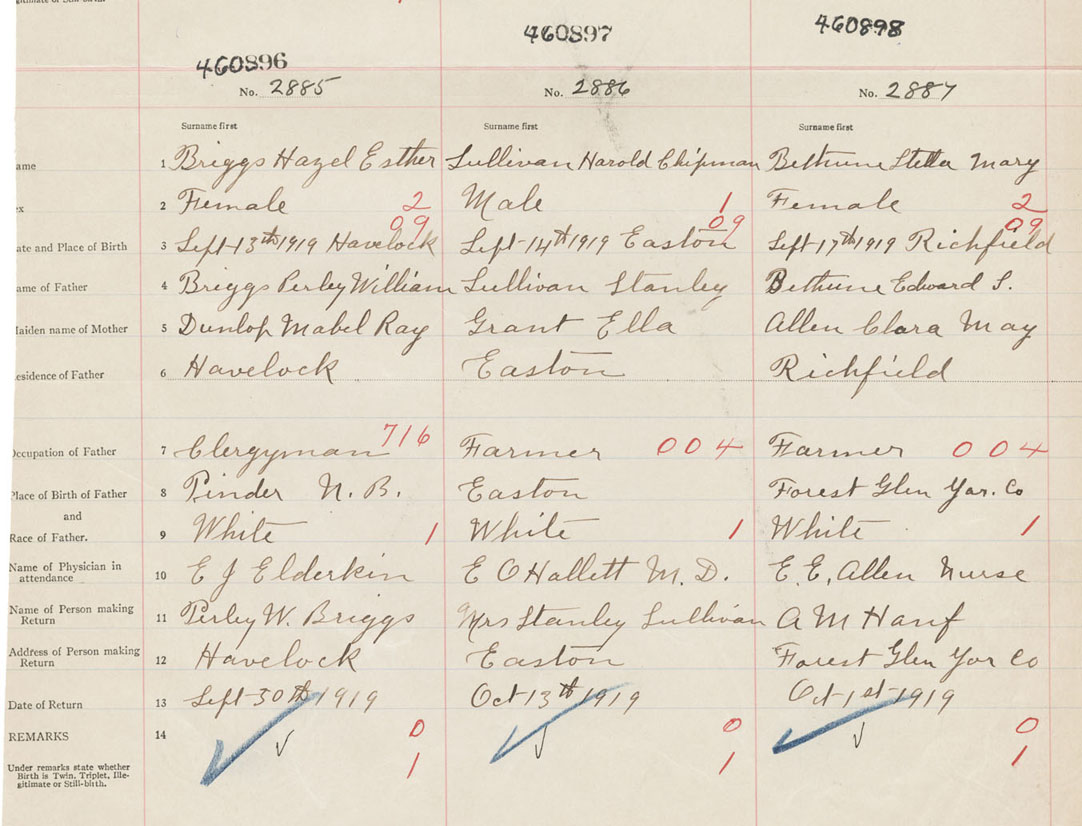 gitimate or Still-birth.
460896 460897 460898
No. 2885 No. 2886 No. 2887
Surname first Surname first Surname first
ame 1 Briggs Hazel Esther Sullivan Harold Chipman Bethune Stella Mary
ex 2 Female 2 Male 1 Female 2
09 09 09
ate and Place of Birth 3 Sept 13th 1919 Havelock Sept 14th 1919 Easton Sept 17th 1919 Richfield
ame of Father 4 Briggs Perley William Sullivan Stanley Bethune Edward S.
Maiden name of Mother 5 Dunlop Mabel Ray Grant Ella Allen Clara May
esidence of Father 6 Havelock Easton Richfield
Occupation of Father 7 Clergyman 716 Farmer 004 Farmer 004
Place of Birth of Father 8 Pinder N.B. Easton Forest Glen Yar. Co
and
Race of Father. 9 White 1 White 1 White 1
Name of Physician in
attendance 10 E J Elderkin E O Hallett M.D. E.E. Allen Nurse
Name of Person making
Return 11 Perley W. Briggs Mrs Stanley Sullivan A M
Address of Person making
Return 12 Havelock Easton Forest Glen Yar Co
Date of Return 13 Sept 30th 1919 Oct 13th 1919 Oct 1st 1919
REMARKS 14 0 0 0
Under remarks state whether
Birth is Twin, Triplet, Ille-
gitimate or Still-birth. 1 1 1